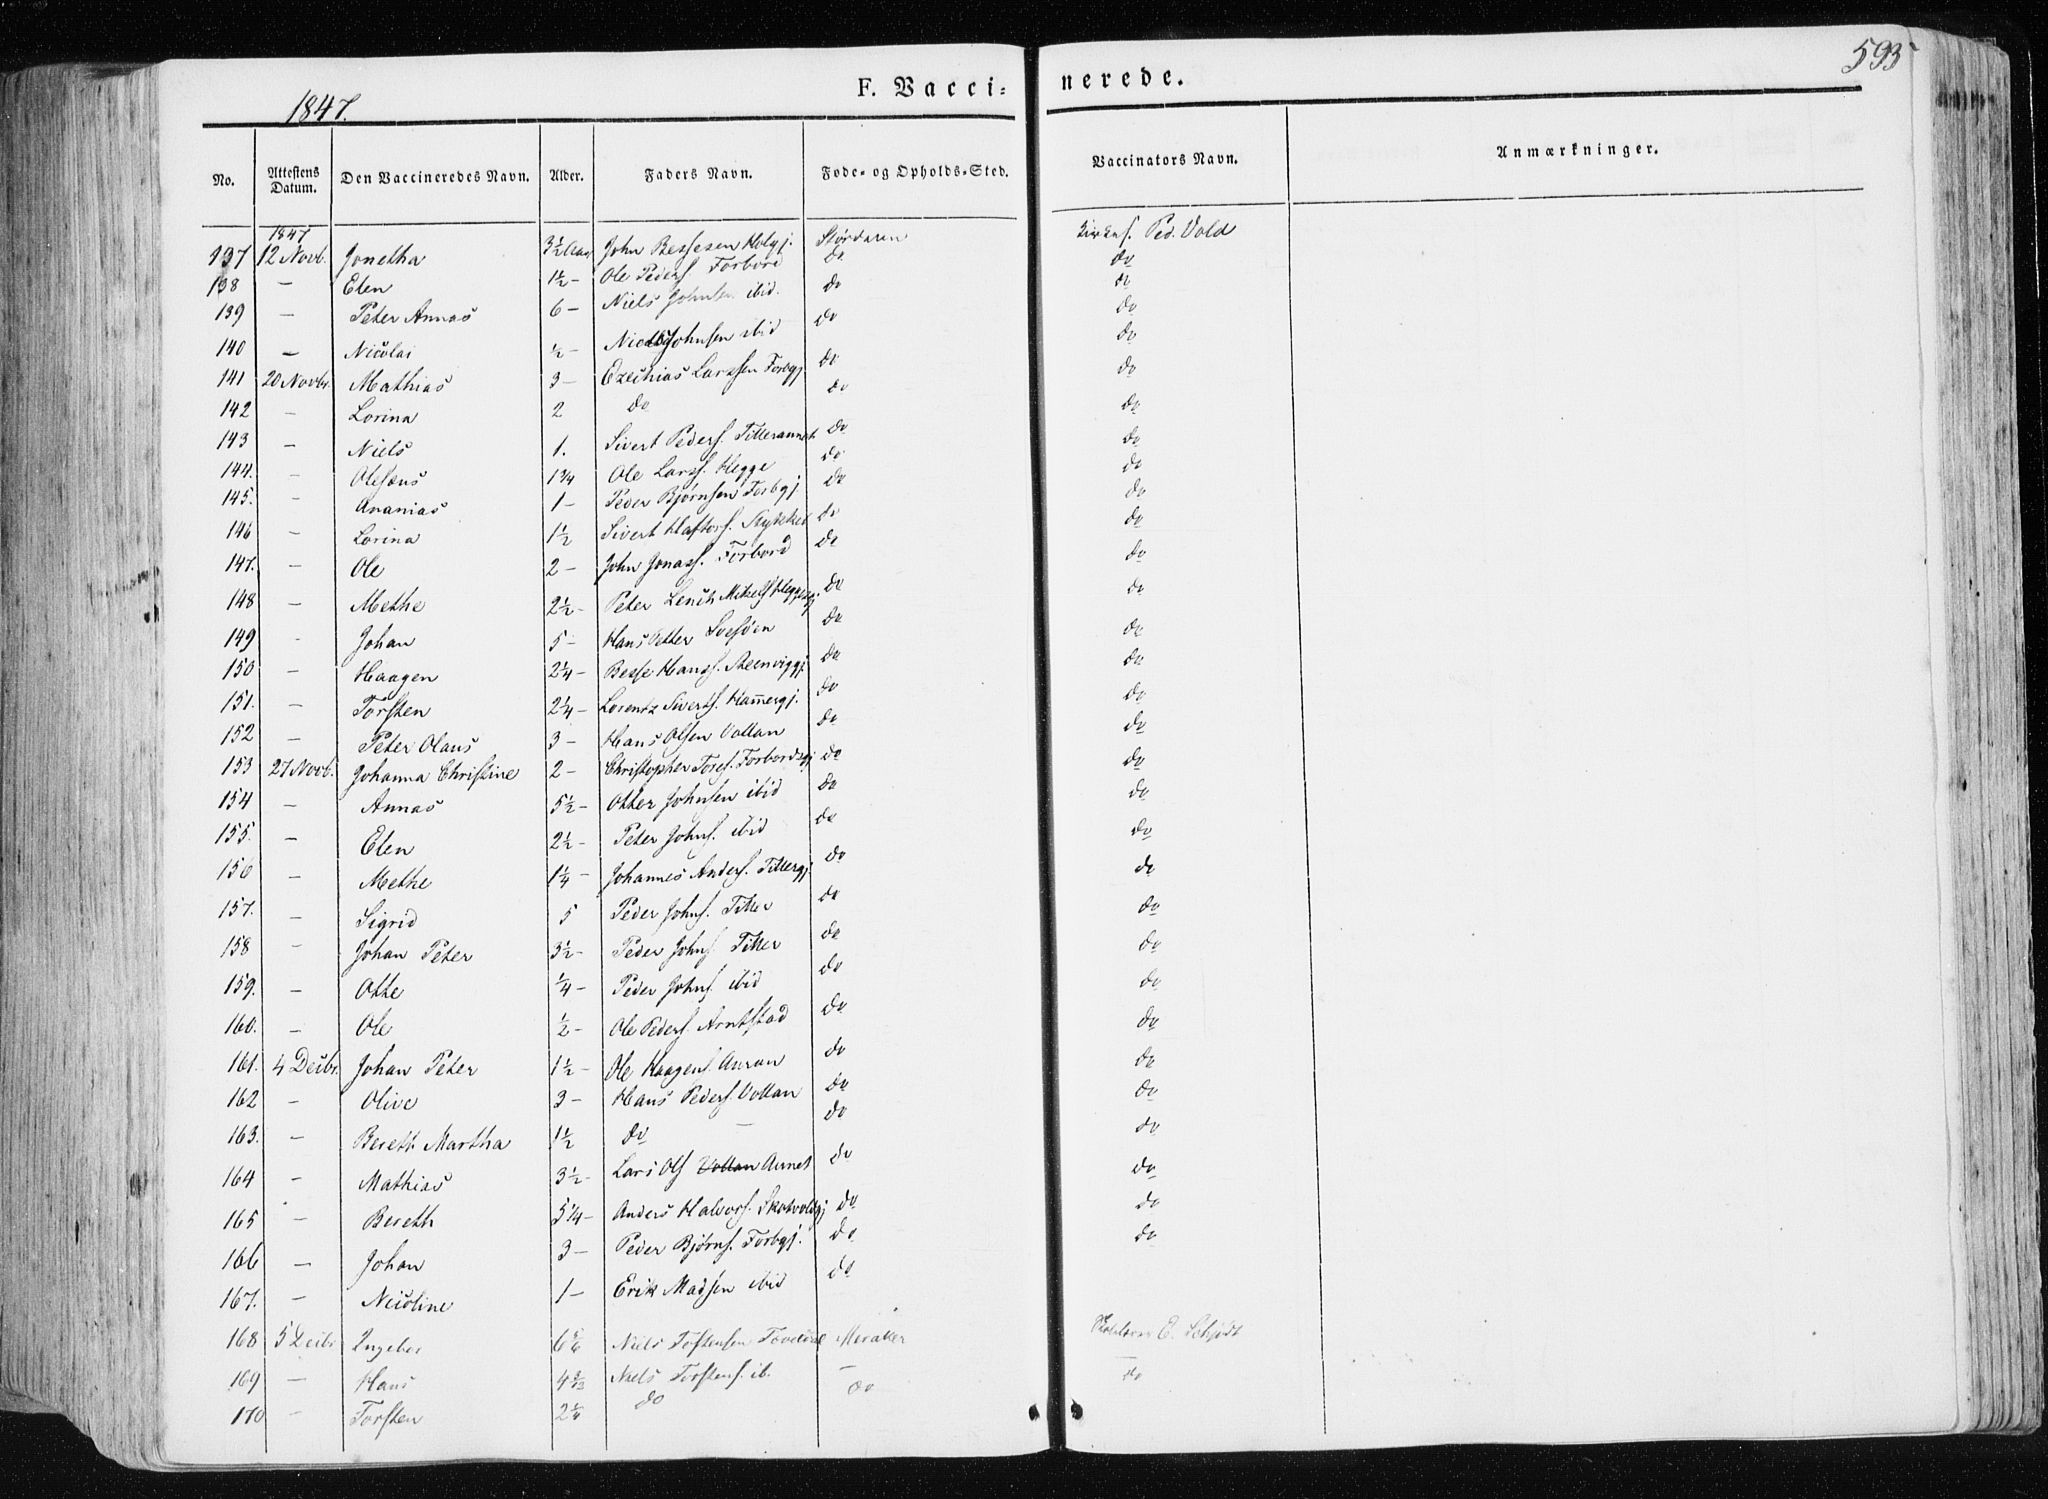 593
1847.
F. Vacci= nerede.
No. Attestens Datum. Den Vaccineredes Navn. Alder. Faders Navn. Føde= og Opholds=Sted. Vaccinators Navn. Anmærkninger.
1847
137 12 Novb. Jonetha 3½ Aar John Bessesen Holgj. Størdaren Kirkes. Ped. Vold
138 — Elen 1½ — Ole Peders. Forbord do do
139 — Peter Annas 6 — Niels Johnsen ibid. do do
140 — Nicolai ½ — Niels Johnsen ibid do do
141 20 Novbr. Mathias 3 — Ezechias Larssen Forbgj. do do
142 — Lorina 2 do do do
143 — Niels 1. Sivert Peders. Titterannet do do
144. — Olesæus 1¾ Ole Larss. Hegge do do
145. — Ananias 1 — Peder Bjørnsen Forbgj do do
146 — Lorina 1½ Sivert Haftors. Stykket do do
147. — Ole 2 — John Jonass. Forbord do do
148 — Methe 2½ — Peter Lenith Mikels Heggesgj. do do
149 — Johan 5 — Hans Petter do do
150 — Haagen 2¼ — Besse Hanss. Steenviggj. do do
151. — Torsten 2¼ — Lorentz Siverts. Hamergj. do do
152 — Peter Olaus 3 — Hans Olsen Vollan do do
153 27 Novb. Johanna Christine 2 — Christopher Tores. Forbordsgj do do
154 — Annas 5½ — Otter Johnsen ibid do do
155. — Elen 2½ — Peter Johns. ibid do do
156 — Methe 1¼ — Johannes Anders. Tittergj. do do
157. — Sigrid 5 Peder Johns. Titter do do
158 — Johan Peter 3½ — Peder Johns Titter do do
159. — Otte ¼ — Peder Johns. ibid do do
160. — Ole ½ — Ole Peders. Arntstad do do
161. 4 Decbr. Johan Peter 1½ — Ole Haagens. Auran do do
162 — Olive 3 — Hans Peders. Vollan do do
163. — Bereth Martha 1½ do — do do
164 — Mathias 3½ — Lars Ols Vollan Aunet do do
165 — Bereth 5¼ — Anders Halvors. Skatvoldgj do do
166 — Johan 3 — Peder Bjørns. Forbgj. do do
167. — Nicoline 1 — Erik Madsen ibid do
168 5 Decbr Ingeber 6 Niels Torstensen Tevedal Meraker E. Schjødt
169 — Hans 4 Niels Torstens. ib. — —
170 — Torsten 2 do do do